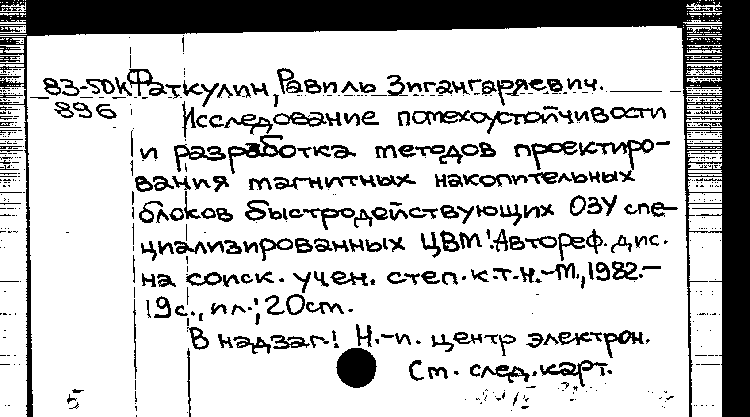 83-50К Фаткулин, Равиль Зигангаряевич.
896 Исследование помехоустойчивости
и разработка методов проектиро-
вания магнитных накопительных
блоков быстродействующих ОЗУ спе-
циализированных ЦВМ: Автореф. дис.
на соиск. учен. степ. к.т.н.-М., 1982.-
19с., ил.; 20см.
В надзаг.: Н.-и. центр электрон.
См. след. карт.
5